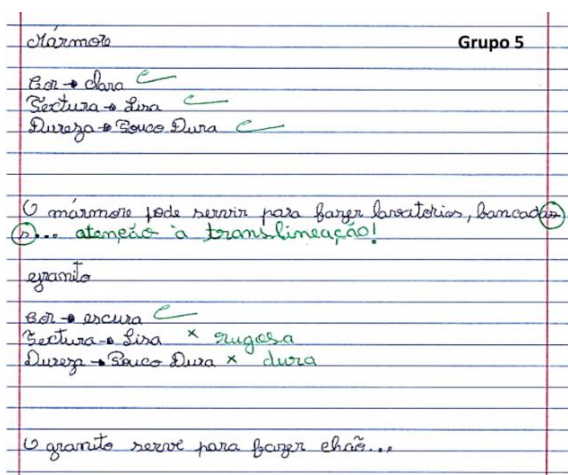 Mármore
Grupo 5
Cor → clara C
Textura → Lisa C
Dureza → Pouco Dura C
O mármore pode servir para fazer lavatórios, bancada
s... atenção à translineação!
granito
Cor → escura C
Textura → Lisa × rugosa
Dureza → Pouco Dura × dura
O granito serve para fazer chão...